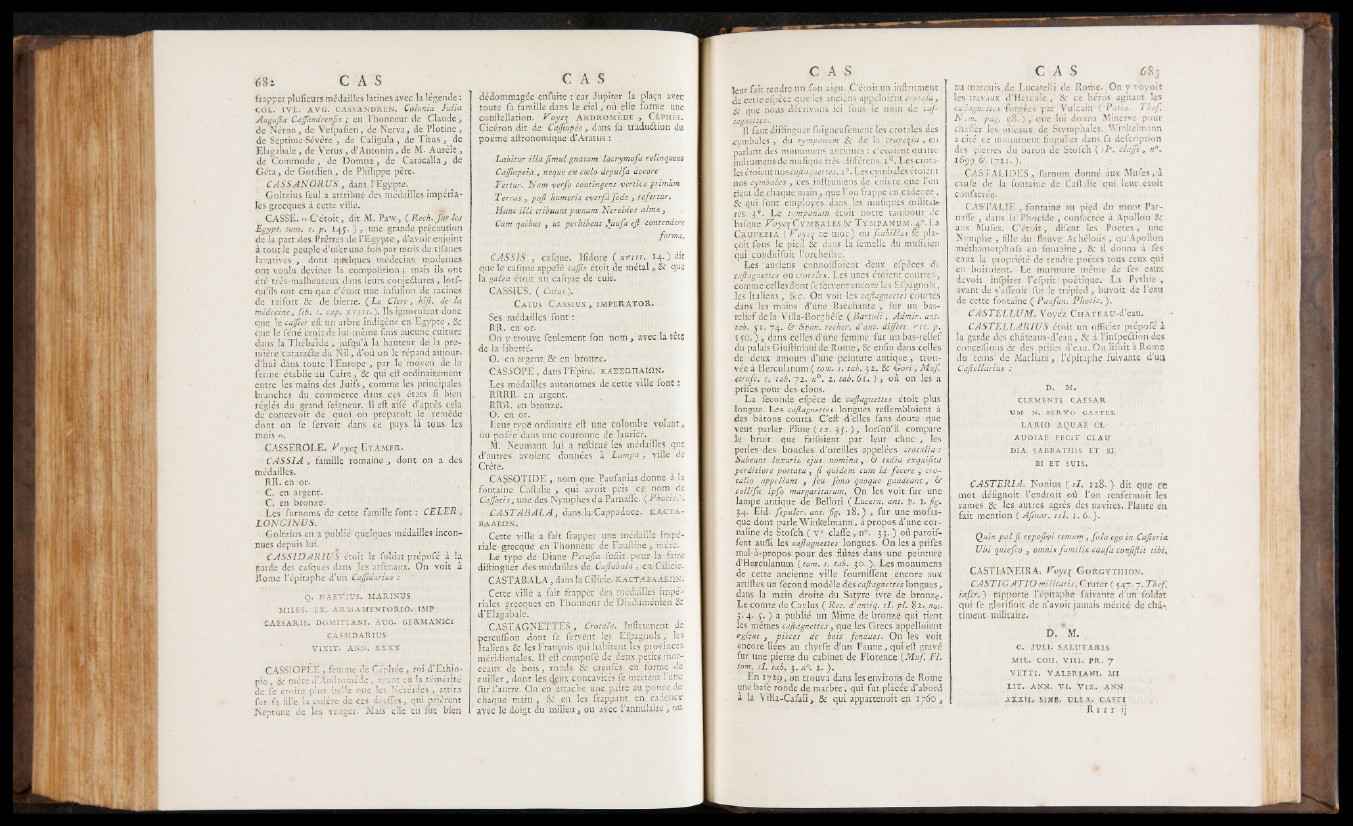 682 C A S
frapper plusieurs médailles latines avec la légende :
COL. IVL. AVG. CASSANDREN. Colonia Julia
Augusta Cassandrensis ; en l'honneur de Claude,
de Néron, de Vespasien, de Nerva, de Plotine,
de Septime-Sévère, de Caligula, de Titus, de
Elagabale, de Verus, d'Antonin, de M. Aurèle,
de Commode, de Domna, de Caracalla, de
Géta, de Gordien, de Philippe père.
CASSANORUS, dans l'Egypte.
Goltzius seul a attribué des médailles impéria-
les grecques à cette ville.
CASSE. « C'étoit, dit M. Paw, ( Rech. sur les
Egypt. tom. 1. p. 145. ), une grande précaution
de la part des Prêtres de l'Egypte, d'avoir enjoint
à tout le peuple d'user une fois par mois de tisanes
laxatives, dont quelques médecins modernes
ont voulu deviner la composition ; mais ils ont
été très-malheureux dans leurs conjectures, lors-
qu'ils ont cru que c'étoit une infusion de racines
de raifort & de bierre. ( Le Clerc, hist. de la
médecine, lib. 1. cap. XVIII.). Ils ignoroient donc
que le cassier est un arbre indigène en Egypte, &
que le séné croît de lui-même sans aucune culture
dans la Thébaïde, jusqu'à la hauteur de la pre-
mière cataracte du Nil, d'où on le répand aujour-
d'hui dans toute l'Europe, par le moyen de la
ferme établie au Caire, & qui est ordinairement
entre les mains des Juifs, comme les principales
branches du commerce dans ces états si bien
réglés du grand seigneur. Il est aisé d'après cela
de concevoir de quoi on préparoit le remède
dont on se servoit dans ce pays là tous les
mois ».
CASSEROLE. Voyez ETAMER.
CASSIA, famille romaine, dont on a des
médailles.
RR. en or.
C. en argent.
C. en bronze.
Les surnoms de cette famille sont : CELER,
LONGINUS.
Goltzius en a publié quelques médailles incon-
nues depuis lui.
CASSIDARIUS étoit le soldat préposé à la
garde des casques dans les arsenaux. On voit à
Rome l'épitaphe d'un Cassidarius :
Q. NAEVIUS. MARINUS
MILES. EX. ARMAMENTORIO. IMP
CAESARIS. DOMITIANI. AUG. GERMANICI
CASSIDARIUS
VIXIT. ANN. XXXX
CASSIOPÉE, femme de Céphée, roi d'Ethio-
pie, & mère d'Andromède, ayant eu la témérité
de se croire plus belle que les Néréides, attira
sur sa fille la colère de ces déesses, qui prièrent
Neptune de les venger. Mais elle en fut bien
C A S
dédommagée ensuite : car Jupiter la plaça avec
toute sa famille dans le ciel, où elle forme une
constellation. Voyez ANDROMÈDE, CÉPHÉE.
Cicéron dit de Cassiopée, dans sa traduction du
poëme astronomique d'Aratus :
Labitur illa simul gnatam lacrymosa relinquens
Cassiopeia, neque ex cœlo depulsa decore
Fertur. Nam verso contingens vertice primùm
Terras, post humeris eversâ sede, refertur.
Hanc illi tribuunt pœnam Nereides almæ,
Cum quibus, ut perhibent, ausa est contendere
forma.
CASSIS, casque. Isidore ( XVIII. 14. ) dit
que le casque appelé cassis étoit de métal, & que
la galea étoit un casque de cuir.
CASSIUS. ( Caius ).
CAIUS CASSIUS, IMPERATOR.
Ses médailles sont :
RR. en or.
On y trouve seulement son nom, avec la tête
de la liberté.
O. en argent & en bronze.
CASSOPE, dans l'Epire. ΚΑΣΣΩΠΑΙΩΝ.
Les médailles autonomes de cette ville sont :
RRRR. en argent.
RRR. en bronze.
O. en or.
Leur type ordinaire est une colombe volant,
ou posée dans une couronne de laurier.
M. Neumann lui a restitué les médailles que
d'autres avoient données à Lampa, ville de
Crète.
CASSOTIDE, nom que Pausanias donne à la
fontaine Castalie, qui avoit pris ce nom de
Cassotis, une des Nymphes du Parnasse. ( Phocic.).
CASTABALA, dans la Cappadoce. ΚΑCΤΑ-
ΒΑΛΕΩΝ.
Cette ville a fait frapper une médaille impé-
riale grecque en l'honneur de Faustine, mère.
Le type de Diane Perasia suffit pour la faire
distinguer des médailles de Castabala, en Cilicie.
CASTABALA, dans la Cilicie. ΚΑCΤΑΒΑΛΕΩΝ.
Cette ville a fait frapper des médailles impé-
riales grecques en l'honneur de Diaduménien &
d'Elagabale.
CASTAGNETTES, Crotala. Instrument de
percussion dont se servent les Espagnols, les
Italiens & les François qui habitent les provinces
méridionales. Il est composé de deux petits mor-
ceaux de bois, ronds & creusés en forme de
cuiller, dont les deux concavités se mettent l'une
sur l'autre. On en attache une paire au pouce de
chaque main, & en les frappant en cadence
avec le doigt du milieu, ou avec l'annulaire, on
C A S
leur fait rendre un son aigu. C'étoit un instrument
de cette espèce que les anciens appeloient crotala,
& que nous décrivons ici sous le nom de cas-
tagnettes.
Il faut distinguer soigneusement les crotales des
cymbales, du tympanum & de la crupezia, en
parlant des monumens antiques : c'étoient quatre
instrumens de musique très-différens. 1°. Les crota-
les étoient nos castagnettes. 2°. Les cymbales étoient
nos cymbales, ces instrumens de cuivre que l'on
tient de chaque main, que l'on frappe en cadence,
& qui sont employés dans les musiques militai-
res. 3°. Le tympanum étoit notre tambour de
basque. Voyez CYMBALES & TYMPANUM. 4°. La
CRUPEZIA ( Voyez ce mot ) ou scabilla se pla-
çoit sous le pied & dans la semelle du musicien
qui conduisoit l'orchestre.
Les anciens connoissoient deux espèces de
castagnettes ou crotales. Les unes étoient courtes,
comme celles dont se servent encore les Espagnols,
les Italiens, &c. On voit les castagnettes courtes
dans les mains d'une Bacchante, sur un bas-
relief de la Villa-Borghèse ( Bartoli, Admir. ant.
tab. 51. 74. & Spon. recher. d'ant. dissert. VII. p.
150. ), dans celles d'une femme sur un bas-relief
du palais Giustiniani de Rome, & enfin dans celles
de deux amours d'une peinture antique, trou-
vée à Herculanum ( tom. 1. tab. 32. & Gori, Mus.
etrusc. 1. tab. 72. n°. 2. tab. 61. ), où on les a
prises pour des clous.
La seconde espèce de castagnettes étoit plus
longue. Les castagnettes longues ressembloient à
des bâtons courts. C'est d'elles sans doute que
veut parler Pline ( IX. 35. ), lorsqu'il compare
le bruit que faisoient par leur choc, les
perles des boucles d'oreilles appelées crotalia :
Subeunt luxuriæ ejus nomina, & tædia exquisita
perditiore portatu, si quidem cum id fecere, cro-
talia appellant, ceu sono quoque gaudeant, &
collisu ipso margaritarum. On les voit sur une
lampe antique de Bellori ( Lucern. ant. p. 1. fig.
34. Eid. sepulcr. ant. fig. 18. ), sur une mosaï-
que dont parle Winkelmann, à propos d'une cor-
naline de Stosch ( Ve classe, n°. 33. ) où parois-
sent aussi les castagnettes longues. On les a prises
mal-à-propos pour des flûtes dans une peinture
d'Herculanum ( tom. 1. tab. 30. ). Les monumens
de cette ancienne ville fournissent encore aux
artistes un second modèle des castagnettes longues,
dans la main droite du Satyre ivre de bronze.
Le comte de Caylus ( Rec. d'antiq. II. pl. 82. nos.
3. 4. 5. ) a publié un Mime de bronze qui tient
les mêmes castagnettes, que les Grecs appelloient
, pièces de bois fendues. On les voit
encore liées au thyrse d'un Faune, qui est gravé
sur une pierre du cabinet de Florence ( Mus. Fl.
tom. II. tab. 3. n°. 2. ).
En 1729, on trouva dans les environs de Rome
une base ronde de marbre, qui fut placée d'abord
à la Villa-Casali, & qui appartenoit en 1760,
C A S 683
au marquis de Lucatelli de Rome. On y voyoit
les travaux d'Hercule, & ce héros agitant les
castagnettes forgées par Vulcain ( Patin. Thes.
Num. pag. 98. ), que lui donna Minerve pour
chasser les oiseaux de Stymphales. Winkelmann
a cité ce monument singulier dans sa description
des pierres du baron de Stosch ( IIe. classe, n°.
1699 & 1721. ).
CASTALIDES, surnom donné aux Muses, à
cause de la fontaine de Castalie qui leur étoit
consacrée.
CASTALIE, fontaine au pied du mont Par-
nasse, dans la Phocide, consacrée à Apollon &
aux Muses. C'étoit, disent les Poètes, une
Nymphe, fille du fleuve Achéloüs, qu'Apollon
méthamorphosa en fontaine, & il donna à ses
eaux la propriété de rendre poëtes tous ceux qui
en boiroient. Le murmure même de ses eaux
devoit inspirer l'esprit poëtique. La Pythie,
avant de s'asseoir sur le trépied, buvoit de l'eau
de cette fontaine ( Pausan. Phocic. ).
CASTELLUM. Voyez CHATEAU-d'eau.
CASTELLARIUS étoit un officier préposé à
la garde des châteaux-d'eau, & à l'inspection des
concessions & des prises d'eau. On lisoit à Rome
du tems de Marliani, l'épitaphe suivante d'un
Castellarius :
D. M.
CLEMENTI CAESAR
UM N. SERVO CASTEL
LARIO AQUAE CL
AUDIAE FECIT CLAU
DIA SABBATHIS ET SI
BI ET SUIS.
CASTERIA. Nonius ( II. 128. ) dit que ce
mot désignoit l'endroit où l'on renfermoit les
rames & les autres agrès des navires. Plaute en
fait mention ( Asinar. III. 1. 6. ).
Quin pol si reposivi remum, sola ego in Casteria
Ubi quiesco, omnis familiæ causa consistit tibi.
CASTIANEIRA. Voyez GORGYTHION.
CASTIGATIO militaris. Gruter ( 547. 7. Thes.
inscr. ) rapporte l'épitaphe suivante d'un soldat
qui se glorifioit de n'avoir jamais mérité de châ-
timent militaire.
D. M.
C. JULI. SALUTARIS
MIL. COH. VIII. PR. 7
VETTI. VALERIANI. MI
LIT. ANN. VI. VIX. ANN
XXXII. SINE. ULLA. CASTI
R r r r ij